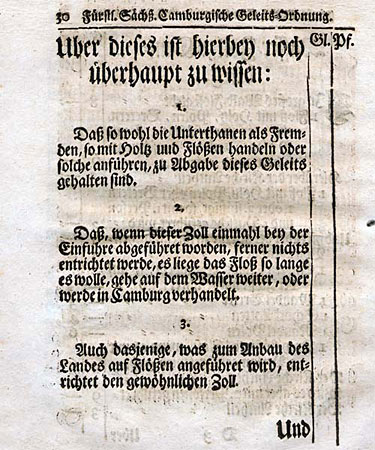 30 Fürstl. Sächß. Camburgische Geleits-Ordnung.
Uber dieses ist hierbey noch
überhaupt zu wissen:
Gl. Pf.
1.
Daß so wohl die Unterthanen als Frem-
den, so mit Holtz und Flößen handeln oder
solche anführen, zu Abgabe dieses Geleits
gehalten sind.
2.
Daß, wenn dieser Zoll einmahl bey der
Einfuhre abgeführet worden, ferner nichts
entrichtet werde, es liege das Floß so lange
es wolle, gehe auf dem Wasser weiter, oder
werde in Camburg verhandelt.
3.
Auch dasjenige, was zum Anbau des
Landes auf Flößen angeführet wird, ent-
richtet den gewöhnlichen Zoll.
Und